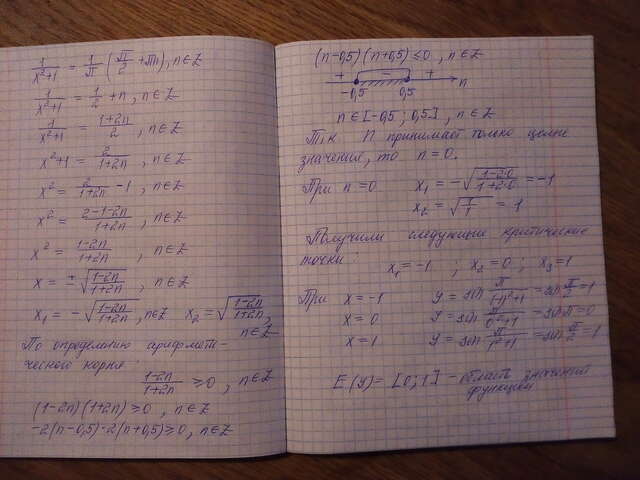 1/(x²+1) = 1/π (π/2 + πn), n∈Z
1/(x²+1) = 1/2 + n, n∈Z
1/(x²+1) = (1+2n)/2, n∈Z
x²+1 = 2/(1+2n), n∈Z
x² = 2/(1+2n) - 1, n∈Z
x² = (2-1-2n)/(1+2n), n∈Z
x² = (1-2n)/(1+2n), n∈Z
x = ±√((1-2n)/(1+2n)), n∈Z
x₁ = -√((1-2n)/(1+2n)), n∈Z x₂ = √((1-2n)/(1+2n)),
n∈Z
По определению арифмети-
ческого корня:
(1-2n)/(1+2n) ≥ 0, n∈Z
(1-2n)(1+2n) ≥ 0, n∈Z
-2(n-0,5)·2(n+0,5) ≥ 0, n∈Z
(n-0,5)(n+0,5) ≤ 0, n∈Z
+ - + n
-0,5 0,5
n∈[-0,5; 0,5], n∈Z
Т.к n принимает только целые
значения, то n=0.
При n=0 x₁ = -√((1-2·0)/(1+2·0)) = -1
x₂ = √(1/1) = 1
Получили следующие критические
точки: x₁=-1; x₂=0; x₃=1
При x=-1 y = sin π/((-1)²+1) = sin π/2 = 1
x=0 y = sin π/(0²+1) = sin π = 0
x=1 y = sin π/(1²+1) = sin π/2 = 1
E(y) = [0;1] - область значений
функции